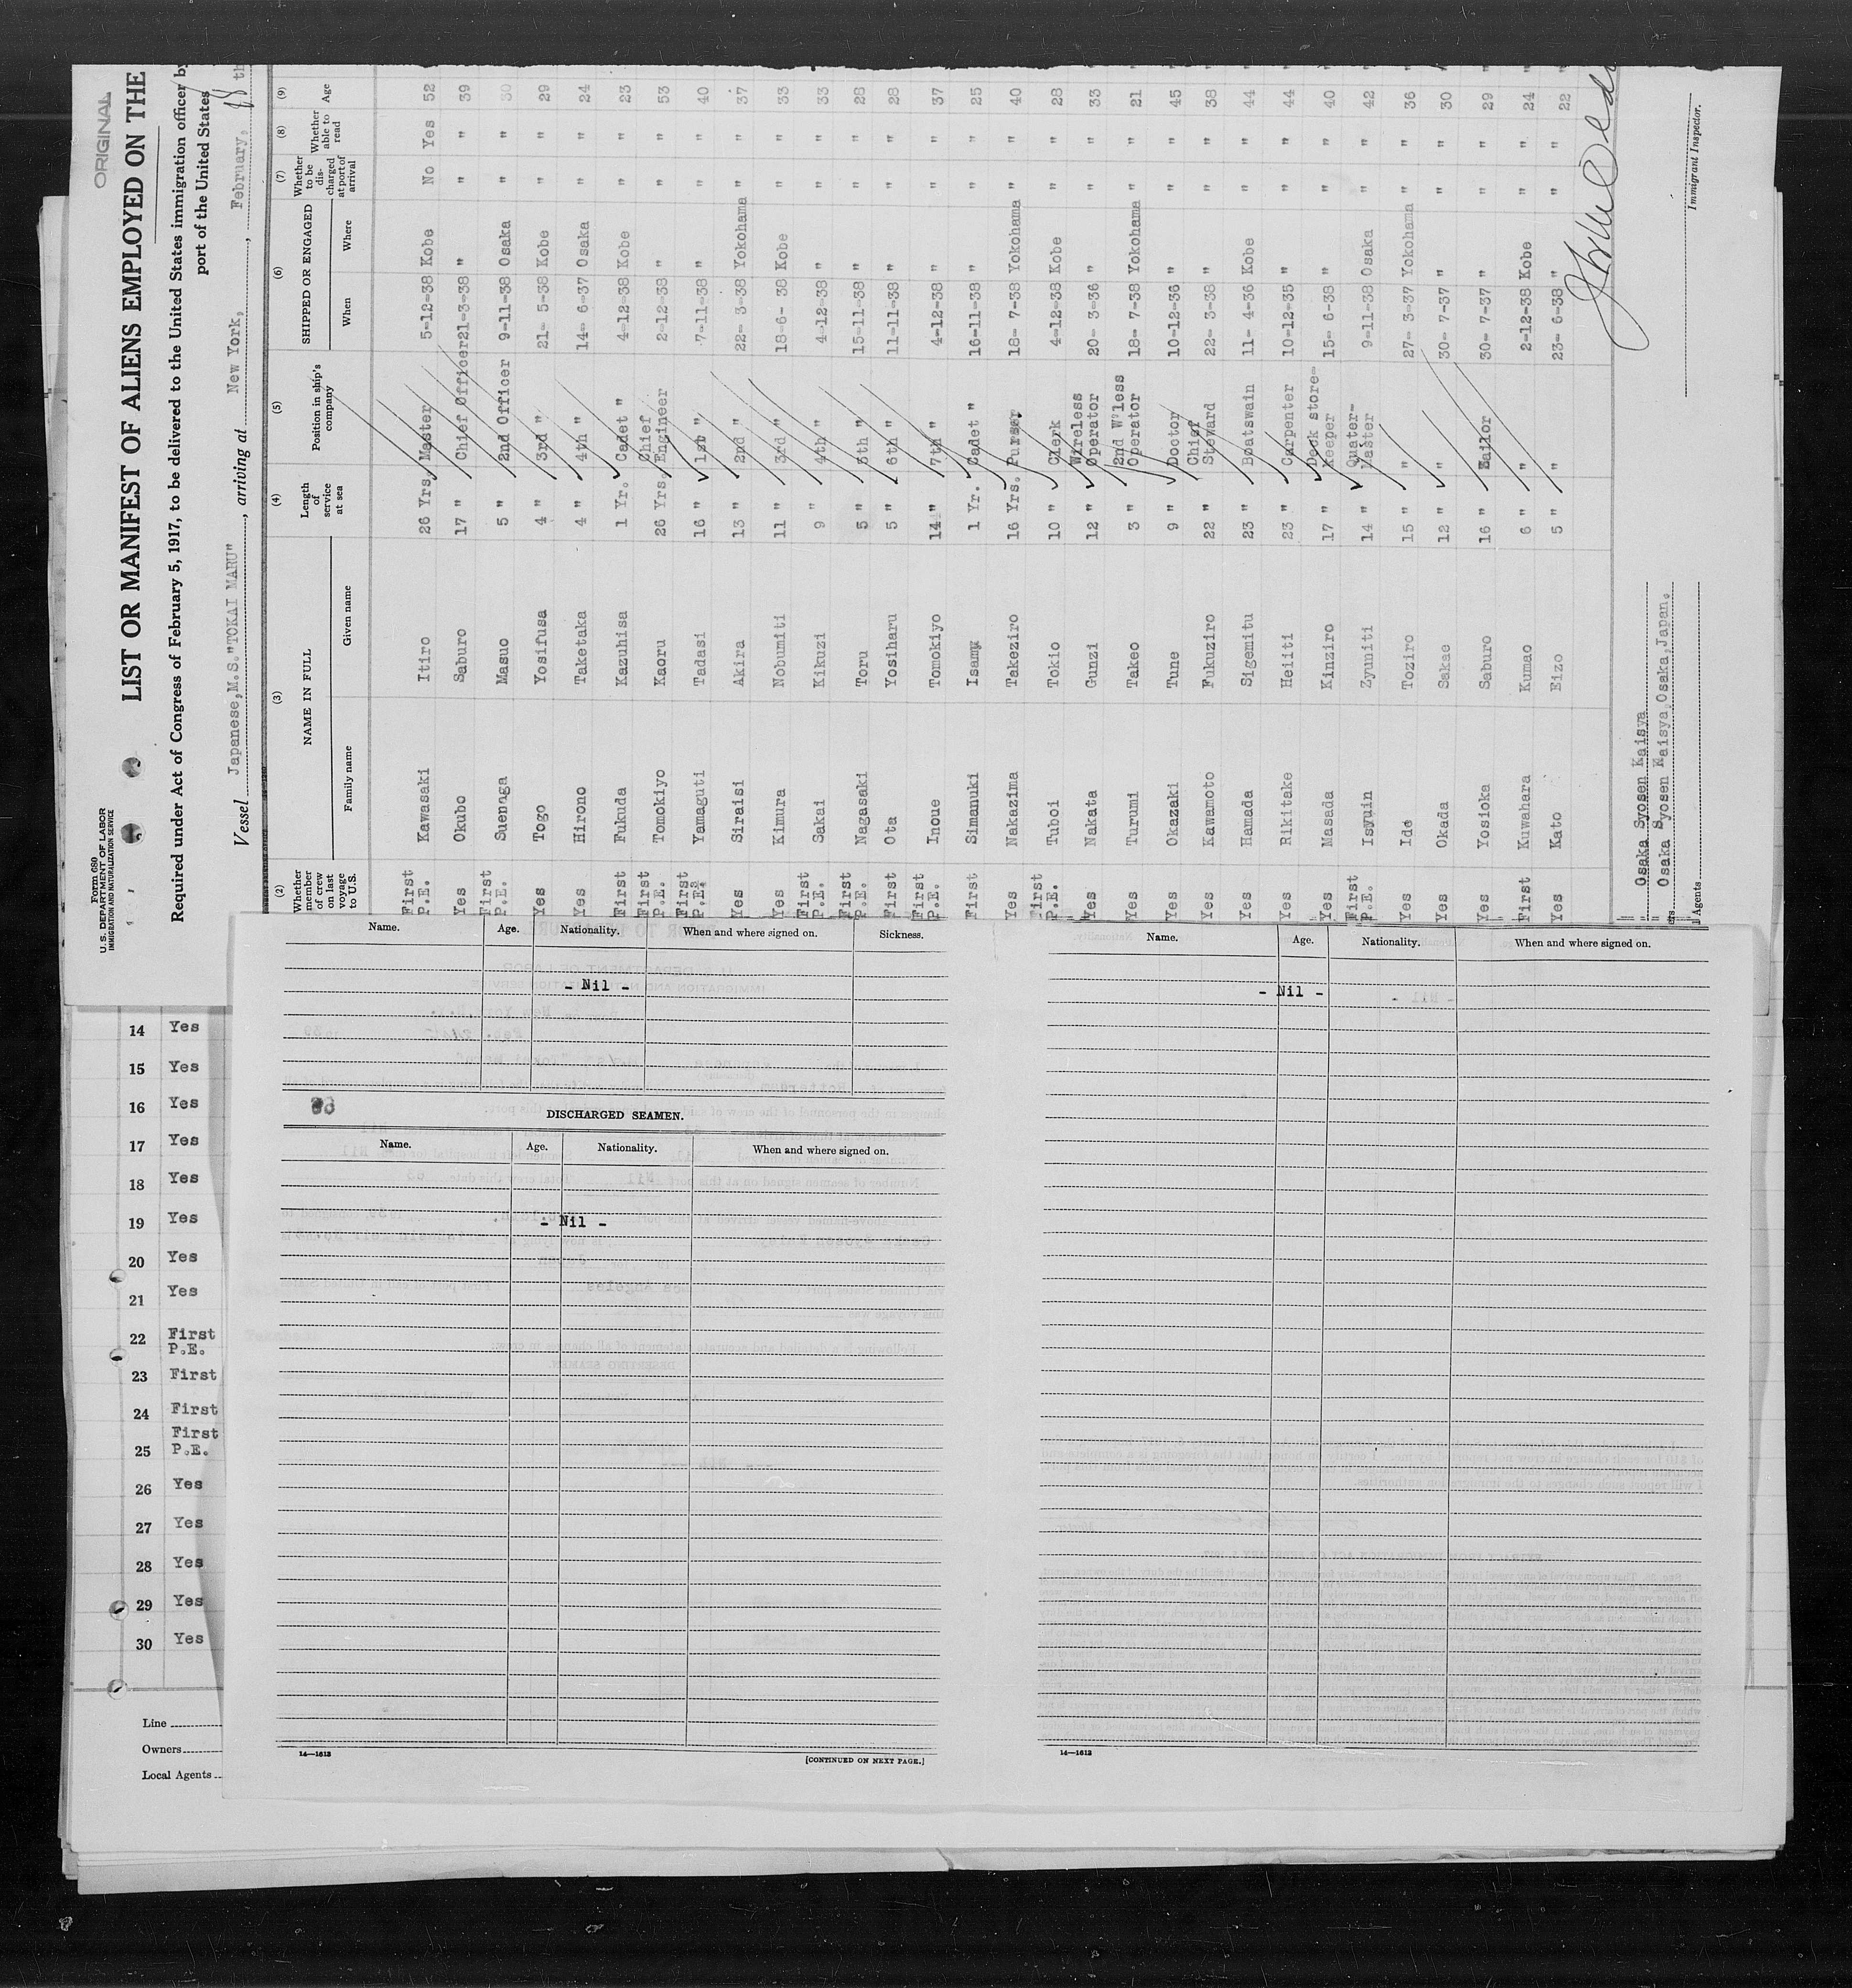 ORIGINAL
Form 680
U. S. DEPARTMENT OF LABOR
IMMIGRATION AND NATURALIZATION SERVICE
LIST OR MANIFEST OF ALIENS EMPLOYED ON THE
Required under Act of Congress of February 5, 1917, to be delivered to the United States immigration officer by
port of the United States
Vessel Japanese,M.S."TOKAI MARU", arriving at New York, February, 28 th
(2) (3) (4) (5) (6) (7) (8) (9)
Whether member of crew on last voyage to U.S. NAME IN FULL Length of service at sea Position in ship's company SHIPPED OR ENGAGED Whether to be discharged at port of arrival Whether able to read Age
Family name Given name When Where
First P.E. Kawasaki Itiro 26 Yrs. Master 5-12-38 Kobe No Yes 52
Yes Okubo Saburo 17 " Chief Officer 21-3-38 " " " 39
First P.E. Suenaga Masuo 5 " 2nd Officer 9-11-38 Osaka " " 30
Yes Togo Yosifusa 4 " 3rd " 21- 5-38 Kobe " " 29
Yes Hirono Taketaka 4 " 4th " 14- 6-37 Osaka " " 24
First Fukuda Kazuhisa 1 Yr. Cadet " 4-12-38 Kobe " " 23
First P.E. Tomokiyo Kaoru 26 Yrs. Chief Engineer 2-12-38 " " " 53
First P.E. Yamaguti Tadasi 16 " 1st " 7-11-38 " " " 40
Yes Siraisi Akira 13 " 2nd " 22- 3-38 Yokohama " " 37
Yes Kimura Nobumiti 11 " 3rd " 18-6- 38 Kobe " " 33
First P.E. Sakai Kikuzi 9 " 4th " 4-12-38 " " " 33
First P.E. Nagasaki Toru 5 " 5th " 15-11-38 " " " 28
First Ota Yosiharu 5 " 6th " 11-11-38 " " " 28
First P.E. Inoue Tomokiyo 14 " 7th " 4-12-38 " " " 37
First Simanuki Isamu 1 Yr. Cadet " 16-11-38 " " " 25
Yes Nakazima Takeziro 16 Yrs. Purser 18- 7-38 Yokohama " " 40
First P.E. Tuboi Tokio 10 " Clerk 4-12-38 Kobe " " 28
Yes Nakata Gunzi 12 " Wireless Operator 20- 3-36 " " " 33
Yes Turumi Takeo 3 " 2nd W'less Operator 18- 7-38 Yokohama " " 21
Yes Okazaki Tune 9 " Doctor 10-12-36 " " " 45
Yes Kawamoto Fukuziro 22 " Chief Steward 22- 3-38 " " " 38
Yes Hamada Sigemitu 23 " Boatswain 11- 4-36 Kobe " " 44
Yes Rikitake Heiiti 23 " Carpenter 10-12-35 " " " 44
Yes Masada Kinziro 17 " Deck store-Keeper 15- 6-38 " " " 40
First P.E. Isyuin Zyuniti 14 " Quater-Master 9-11-38 Osaka " " 42
Yes Ide Toziro 15 " " 27- 3-37 Yokohama " " 36
Yes Okada Sakae 12 " " 30- 7-37 " " " 30
Yes Yosioka Saburo 16 " Sailor 30- 7-37 " " " 29
First Kuwahara Kumao 6 " " 2-12-38 Kobe " " 24
Yes Kato Eizo 5 " " 23- 6-38 " " " 22
Osaka Syosen Kaisya
Osaka Syosen Kaisya,Osaka,Japan.
Agents
Immigrant Inspector.
14 Yes
15 Yes
16 Yes
17 Yes
18 Yes
19 Yes
20 Yes
21 Yes
22 First P.E.
23 First
24 First
25 First P.E.
26 Yes
27 Yes
28 Yes
29 Yes
30 Yes
Line
Owners
Local Agents
Name. Age. Nationality. When and where signed on. Sickness.
- Nil -
DISCHARGED SEAMEN.
Name. Age. Nationality. When and where signed on.
- Nil -
14—1612
[CONTINUED ON NEXT PAGE.]
Name. Age. Nationality. When and where signed on.
- Nil -
14—1612